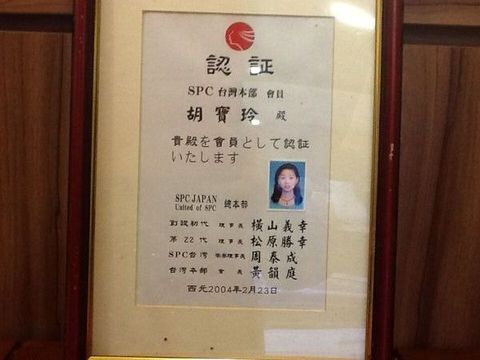 認証
SPC 台灣本部 會員
胡寶玲 殿
貴殿を會員として認証
いたします
SPC JAPAN
United of SPC 總本部
創設初代 理事長 橫山義幸
第22代 理事長 松原勝幸
SPC台灣 理事長 周泰成
台灣本部 會長 黃韻庭
西元2004年2月23日